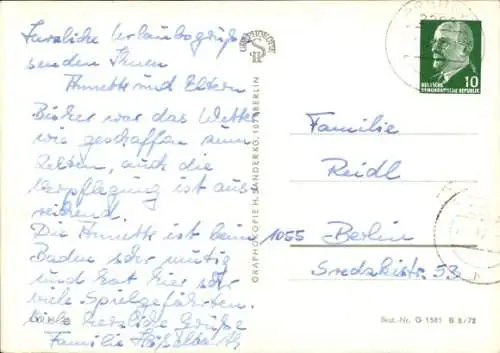 Herzliche Urlaubsgrüße
senden Ihnen
Annette und Eltern
Bisher war das Wetter
wie geschaffen zum
Zelten, auch die
Verpflegung ist aus-
reichend.
Die Annette ist beim
Baden sehr mutig
und hat hier sehr
viele Spielgefährten.
Viele herzliche Grüße
Familie
GRAPHOKOPIE H. SANDER KG, 1071 BERLIN
10
DEUTSCHE
DEMOKRATISCHE REPUBLIK
Familie
Reidl
1055 Berlin
Sredzkistr. 53
Best.-Nr. G 1581 B 8/72